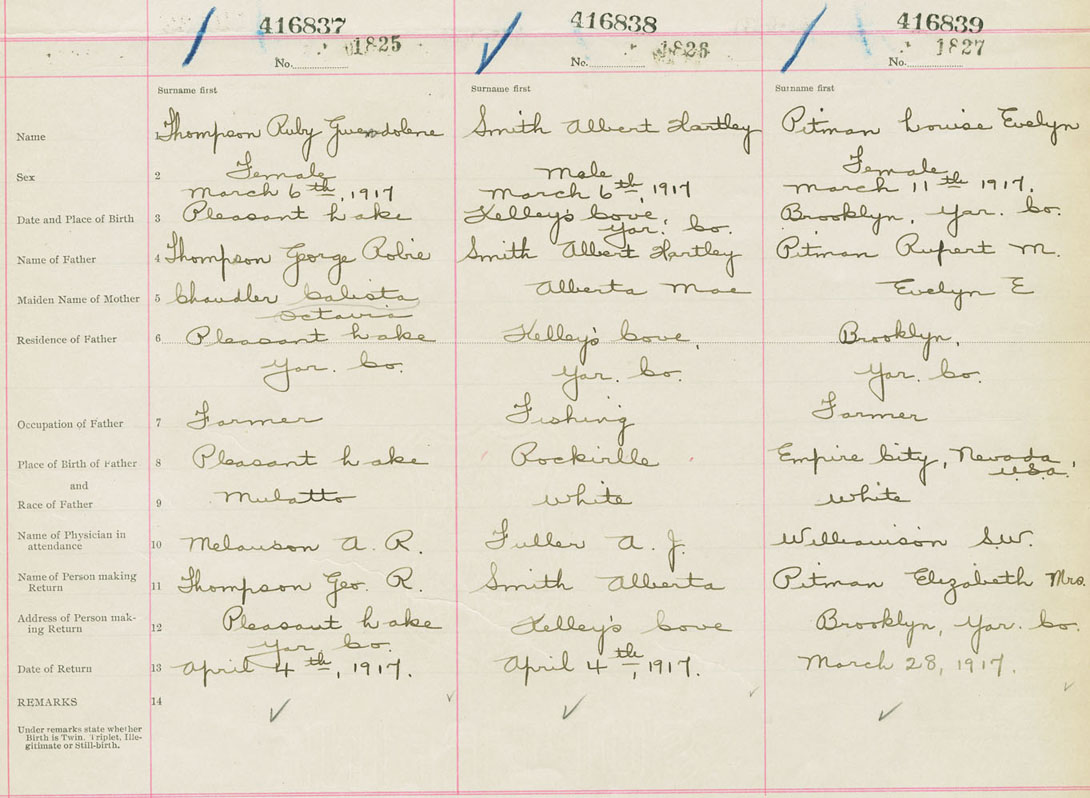 416837 416838 416839
1825 1826 1827
No. No. No.
Surname first Surname first Surname first
Name 1 Thompson Ruby Gwendolene Smith Albert Hartley Pitman Louise Evelyn
Sex 2 Female Male Female
March 6th, 1917 March 6th, 1917 March 11th 1917.
Date and Place of Birth 3 Pleasant Lake Kelley's Cove, Brooklyn, Yar. Co.
Yar. Co.
Name of Father 4 Thompson George Robie Smith Albert Hartley Pitman Rupert M.
Maiden Name of Mother 5 Chandler Calista Alberta Mae Evelyn E
Octavia
Residence of Father 6 Pleasant Lake Kelley's Cove, Brooklyn,
Yar. Co. Yar. Co. Yar. Co.
Occupation of Father 7 Farmer Fishing Farmer
Place of Birth of Father 8 Pleasant Lake Rockirlle Empire City, Nevada,
U.S.A.
and
Race of Father 9 Mulatto White White
Name of Physician in
attendance 10 Melanson A. R. Fuller A. J. Williamson S.W.
Name of Person making
Return 11 Thompson Geo. R. Smith Alberta Pitman Elizabeth Mrs.
Address of Person mak-
ing Return 12 Pleasant Lake Kelley's Cove Brooklyn, Yar. Co.
Yar. Co.
Date of Return 13 April 4th, 1917. April 4th, 1917. March 28, 1917.
REMARKS 14
Under remarks state whether
Birth is Twin. Triplet, Ille-
gitimate or Still-birth.